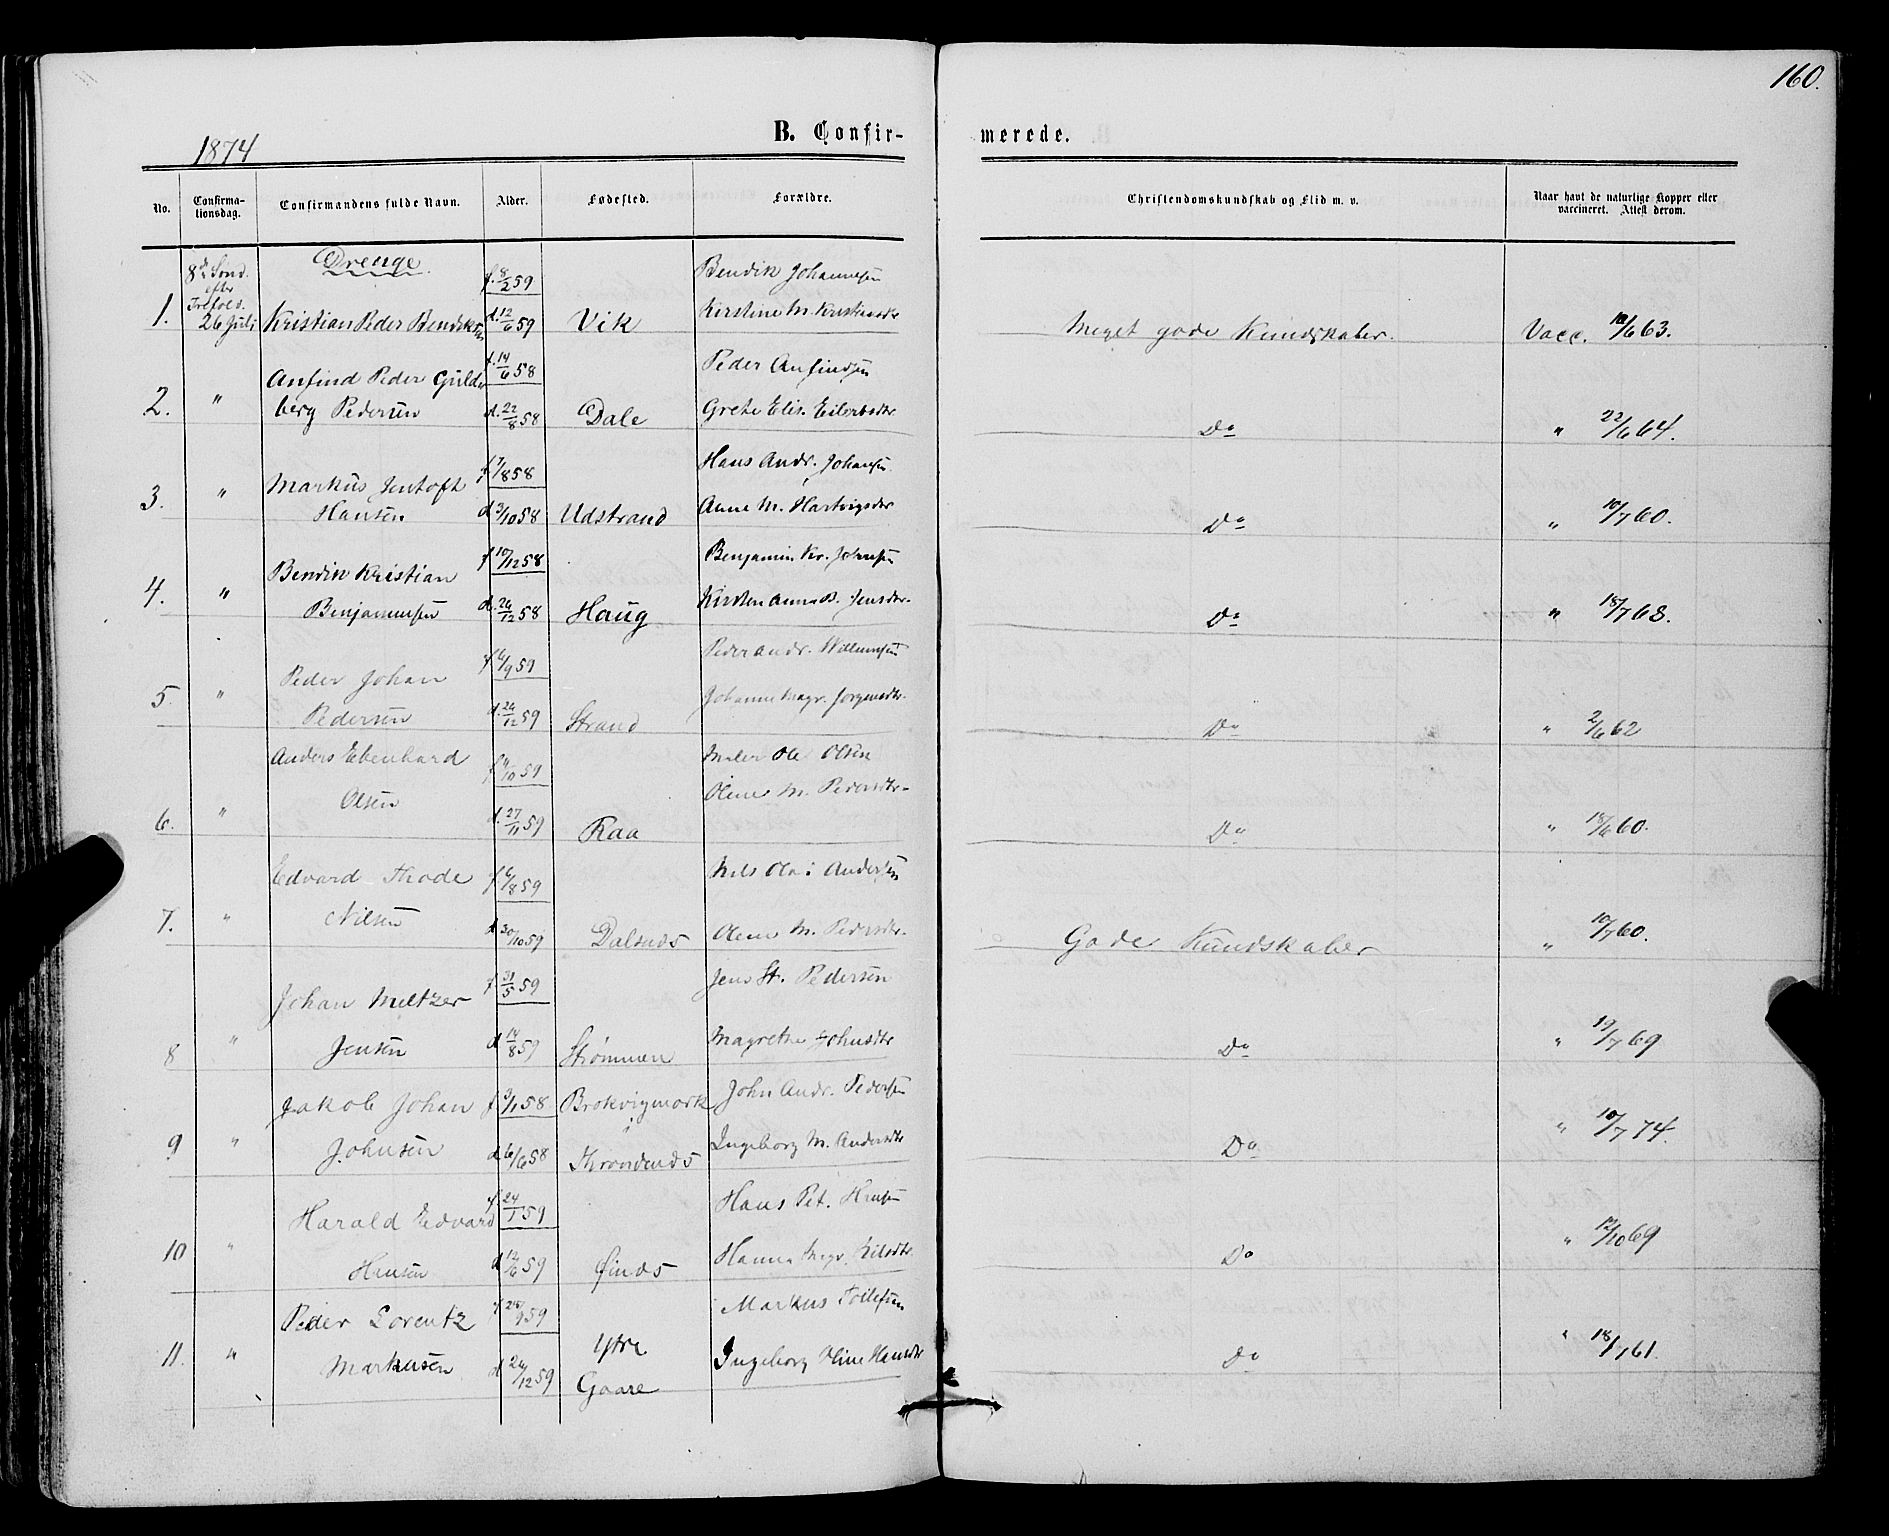 160.
1874
B. Confirmerede.
No. Confirmationsdag. Confirmandens fulde Navn. Alder. Fødested. Forældre. Christendomskundskab og Flid m. v. Naar havt de naturlige Kopper eller vaccineret. Attest derom.
8de Sønd. efter Trefold. Drenge. f. 8/2 59 Bendik Johannesen
1. 26 Juli Kristian Peder Bendiksen d. 12/6 59 Vik Kirstine M. Kristiansdtr Meget gode Kundskaber. Vacc. 63.
Anfind Peder Guld- f. 14/6 58 Peder Anfindsen
2. " berg Pedersen d. 22/8 58 Dale Grete Elis. Eilertsdtr Do " 22/6 64.
Markus Jentoft f 7/8 58 Hans Andr. Johansen
3. " Hansen d 3/10 58 Udstrand Anne M. Hartvigsdtr Do " 10/7 60.
Bendik Kristian f 10/12 58 Benjamin Kr. Johnsen
4. " Benjaminsen d. 26/12 58 Haug Kirsten Anna B. Jensdtr. Do " 18/7 68.
Peder Johan f 6/9 59 Peder Andr. Willumsen
5. " Pedersen d. 26/12 59 Strand Johanne Magr. Jørgensdtr. Do " 2/6 62
Anders Ebenhard f 59 Ole Olsen
6. " Olsen d. 27/11 59 Raa Olene M. Pedersdtr. Do " 18/6 60.
Edvard Thode f 6/8 59 Nils Olai Andersen
7. " Nilsen d 30/10 59 Dalsnds Olene M. Pedersdtr. Gode Kundskaber " 10/7 60.
Johan Meltzer f. 31/5 59 Jens St. Pedersen
8 " Jensen d 14/8 59 Strømmen Magrethe Johnsdtr Do " 19/7 69
Jakob Johan f 3/1 58. Brokvigmark John Andr. Pedersen
9 " Johnsen d 6/6 58 Throndends Ingeborg M. Andersdtr Do " 10/7 74.
Harald Edvard f. 24/1 59 Hans Pet.
10 " d 12/6 59 Hanna Magr. Nilsdtr. Do " 69
Peder Lorentz f 59 Markus Tollefsen
11. " Markusen d 26/12 59 Ytre Gaare Ingeborg Oline Hansdtr Do " 18/7 61.